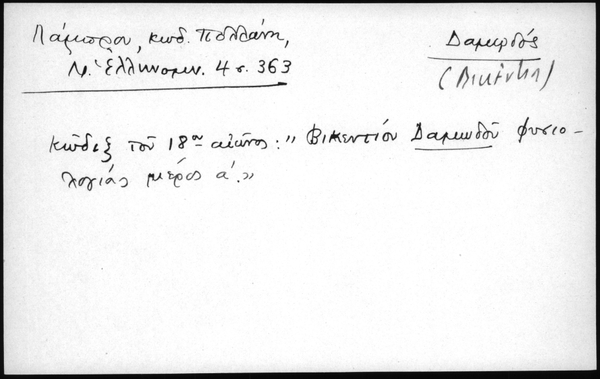 Λάμπρου, κωδ. Πελλάνη,
Ν. Ἑλληνομν. 4 σ. 363
Δαμωδός
(Βικέντιος)
Κῶδιξ τοῦ 18ου αἰῶνος: "Βικεντίου Δαμωδοῦ φυσιο-
λογίας μέρος α'."